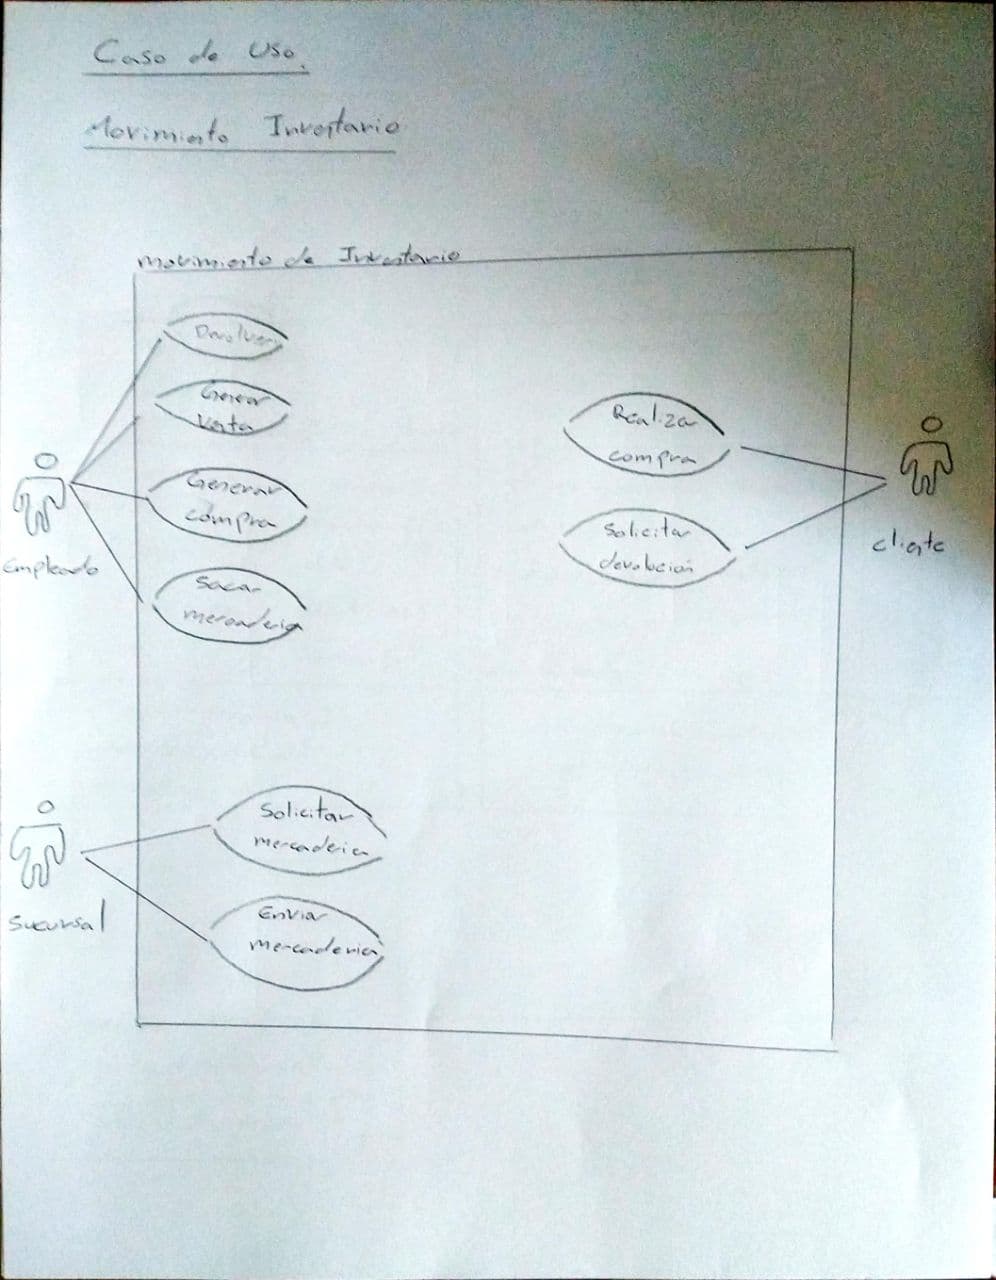 Caso de Uso.
Movimiento Inventario
movimiento de Inventario
Devolver
Generar
Venta
Generar
compra
Sacar
mercaderia
Empleado
Realizar
compra
Solicitar
devolución
cliente
Solicitar
mercaderia
Enviar
mercaderia
Sucursal